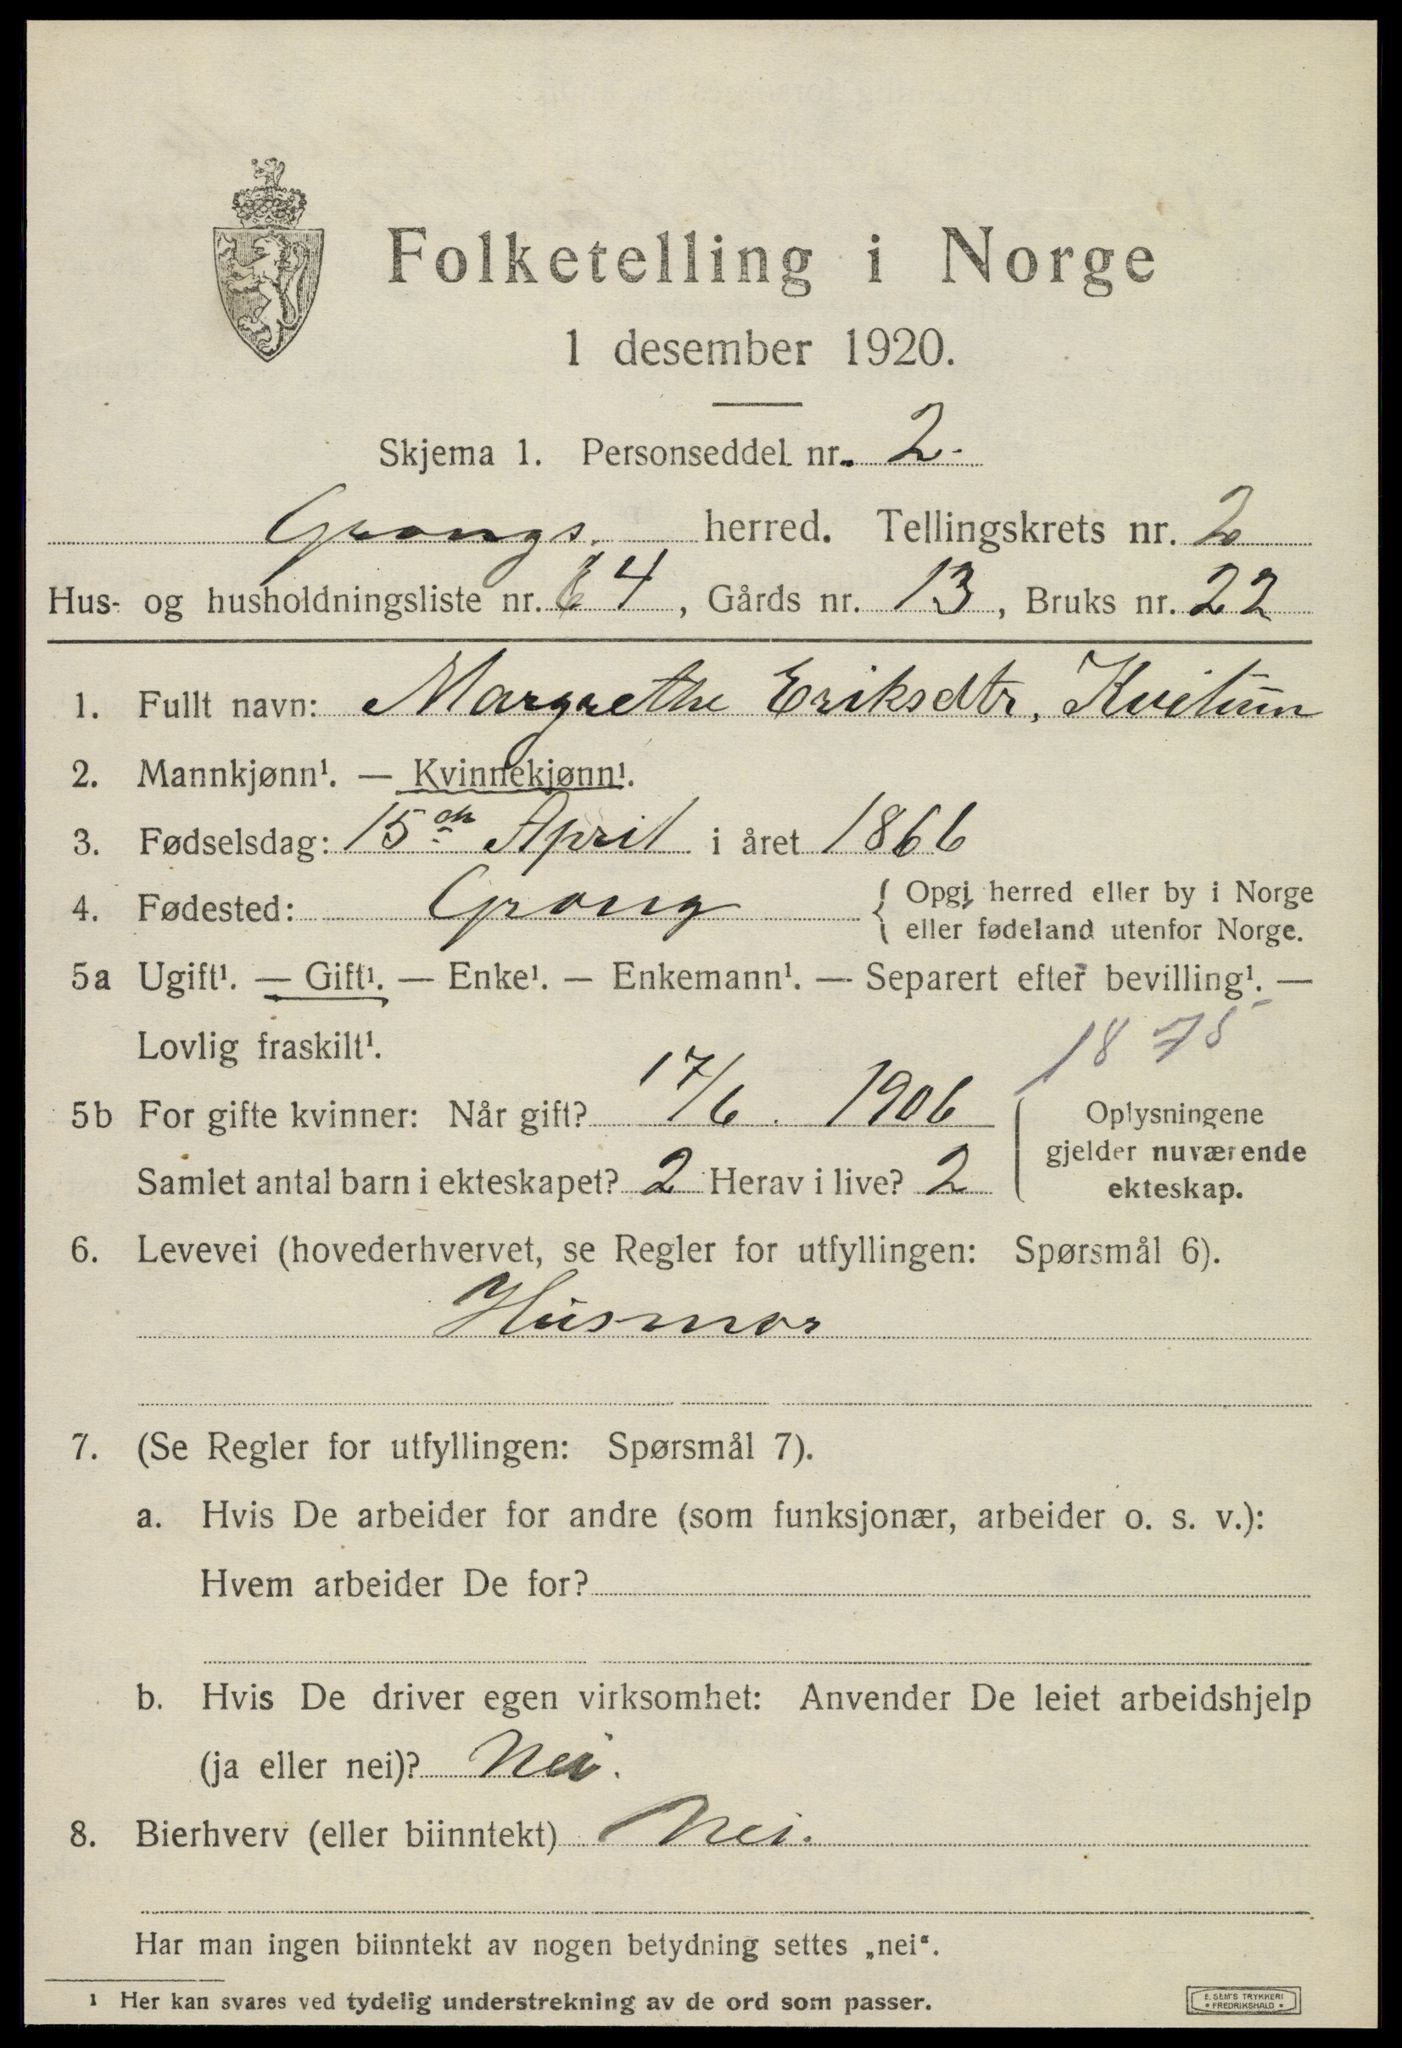 Folketelling i Norge
1 desember 1920.
Skjema 1. Personseddel nr. 2.
Grongs. herred. Tellingskrets nr. 2
Hus- og husholdningsliste nr. 64, Gårds nr. 13, Bruks nr. 22
1. Fullt navn: Margrethe Eriksdtr. Kvitum
2. Mannkjønn¹. — Kvinnekjønn¹.
3. Fødselsdag: 15de April i året 1866
4. Fødested: Grong { Opgi herred eller by i Norge
eller fødeland utenfor Norge.
5a Ugift¹. — Gift¹. — Enke¹. — Enkemann¹. — Separert efter bevilling¹. —
Lovlig fraskilt¹.
1875
5b For gifte kvinner: Når gift? 17/6. 1906
Samlet antal barn i ekteskapet? 2 Herav i live? 2
Oplysningene
gjelder nuværende
ekteskap.
6. Levevei (hovederhvervet, se Regler for utfyllingen: Spørsmål 6).
Husmor
7. (Se Regler for utfyllingen: Spørsmål 7).
a. Hvis De arbeider for andre (som funksjonær, arbeider o. s. v.):
Hvem arbeider De for?
b. Hvis De driver egen virksomhet: Anvender De leiet arbeidshjelp
(ja eller nei)? Nei.
8. Bierhverv (eller biinntekt) Nei.
Har man ingen biinntekt av nogen betydning settes „nei“.
¹ Her kan svares ved tydelig understrekning av de ord som passer.
E. SEM'S TRYKKERI
• FREDRIKSHALD •